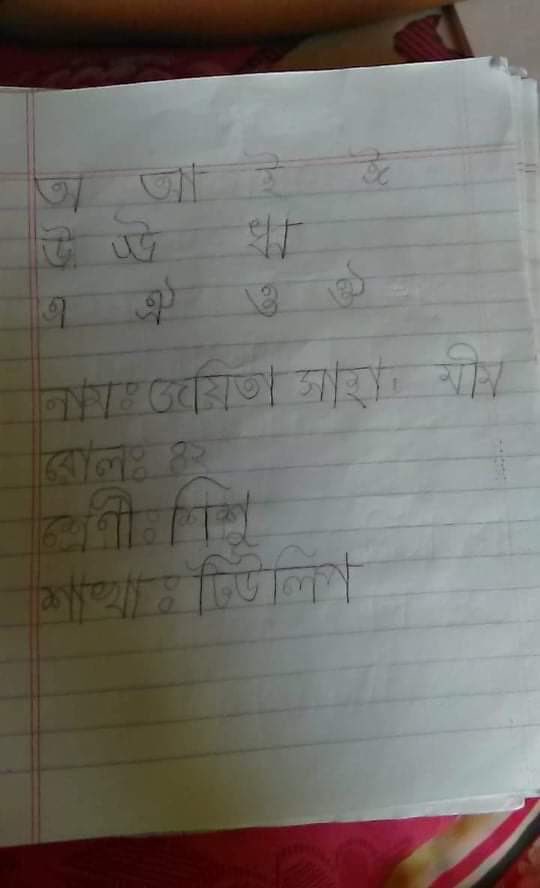 অ আ ই ঈ
উ ঊ ঋ
এ ঐ ও ঔ
নামঃ জয়িতা সাহা মীম
রোলঃ ৪২
শ্রেণীঃ শিশু
শাখাঃ টিউলিপ